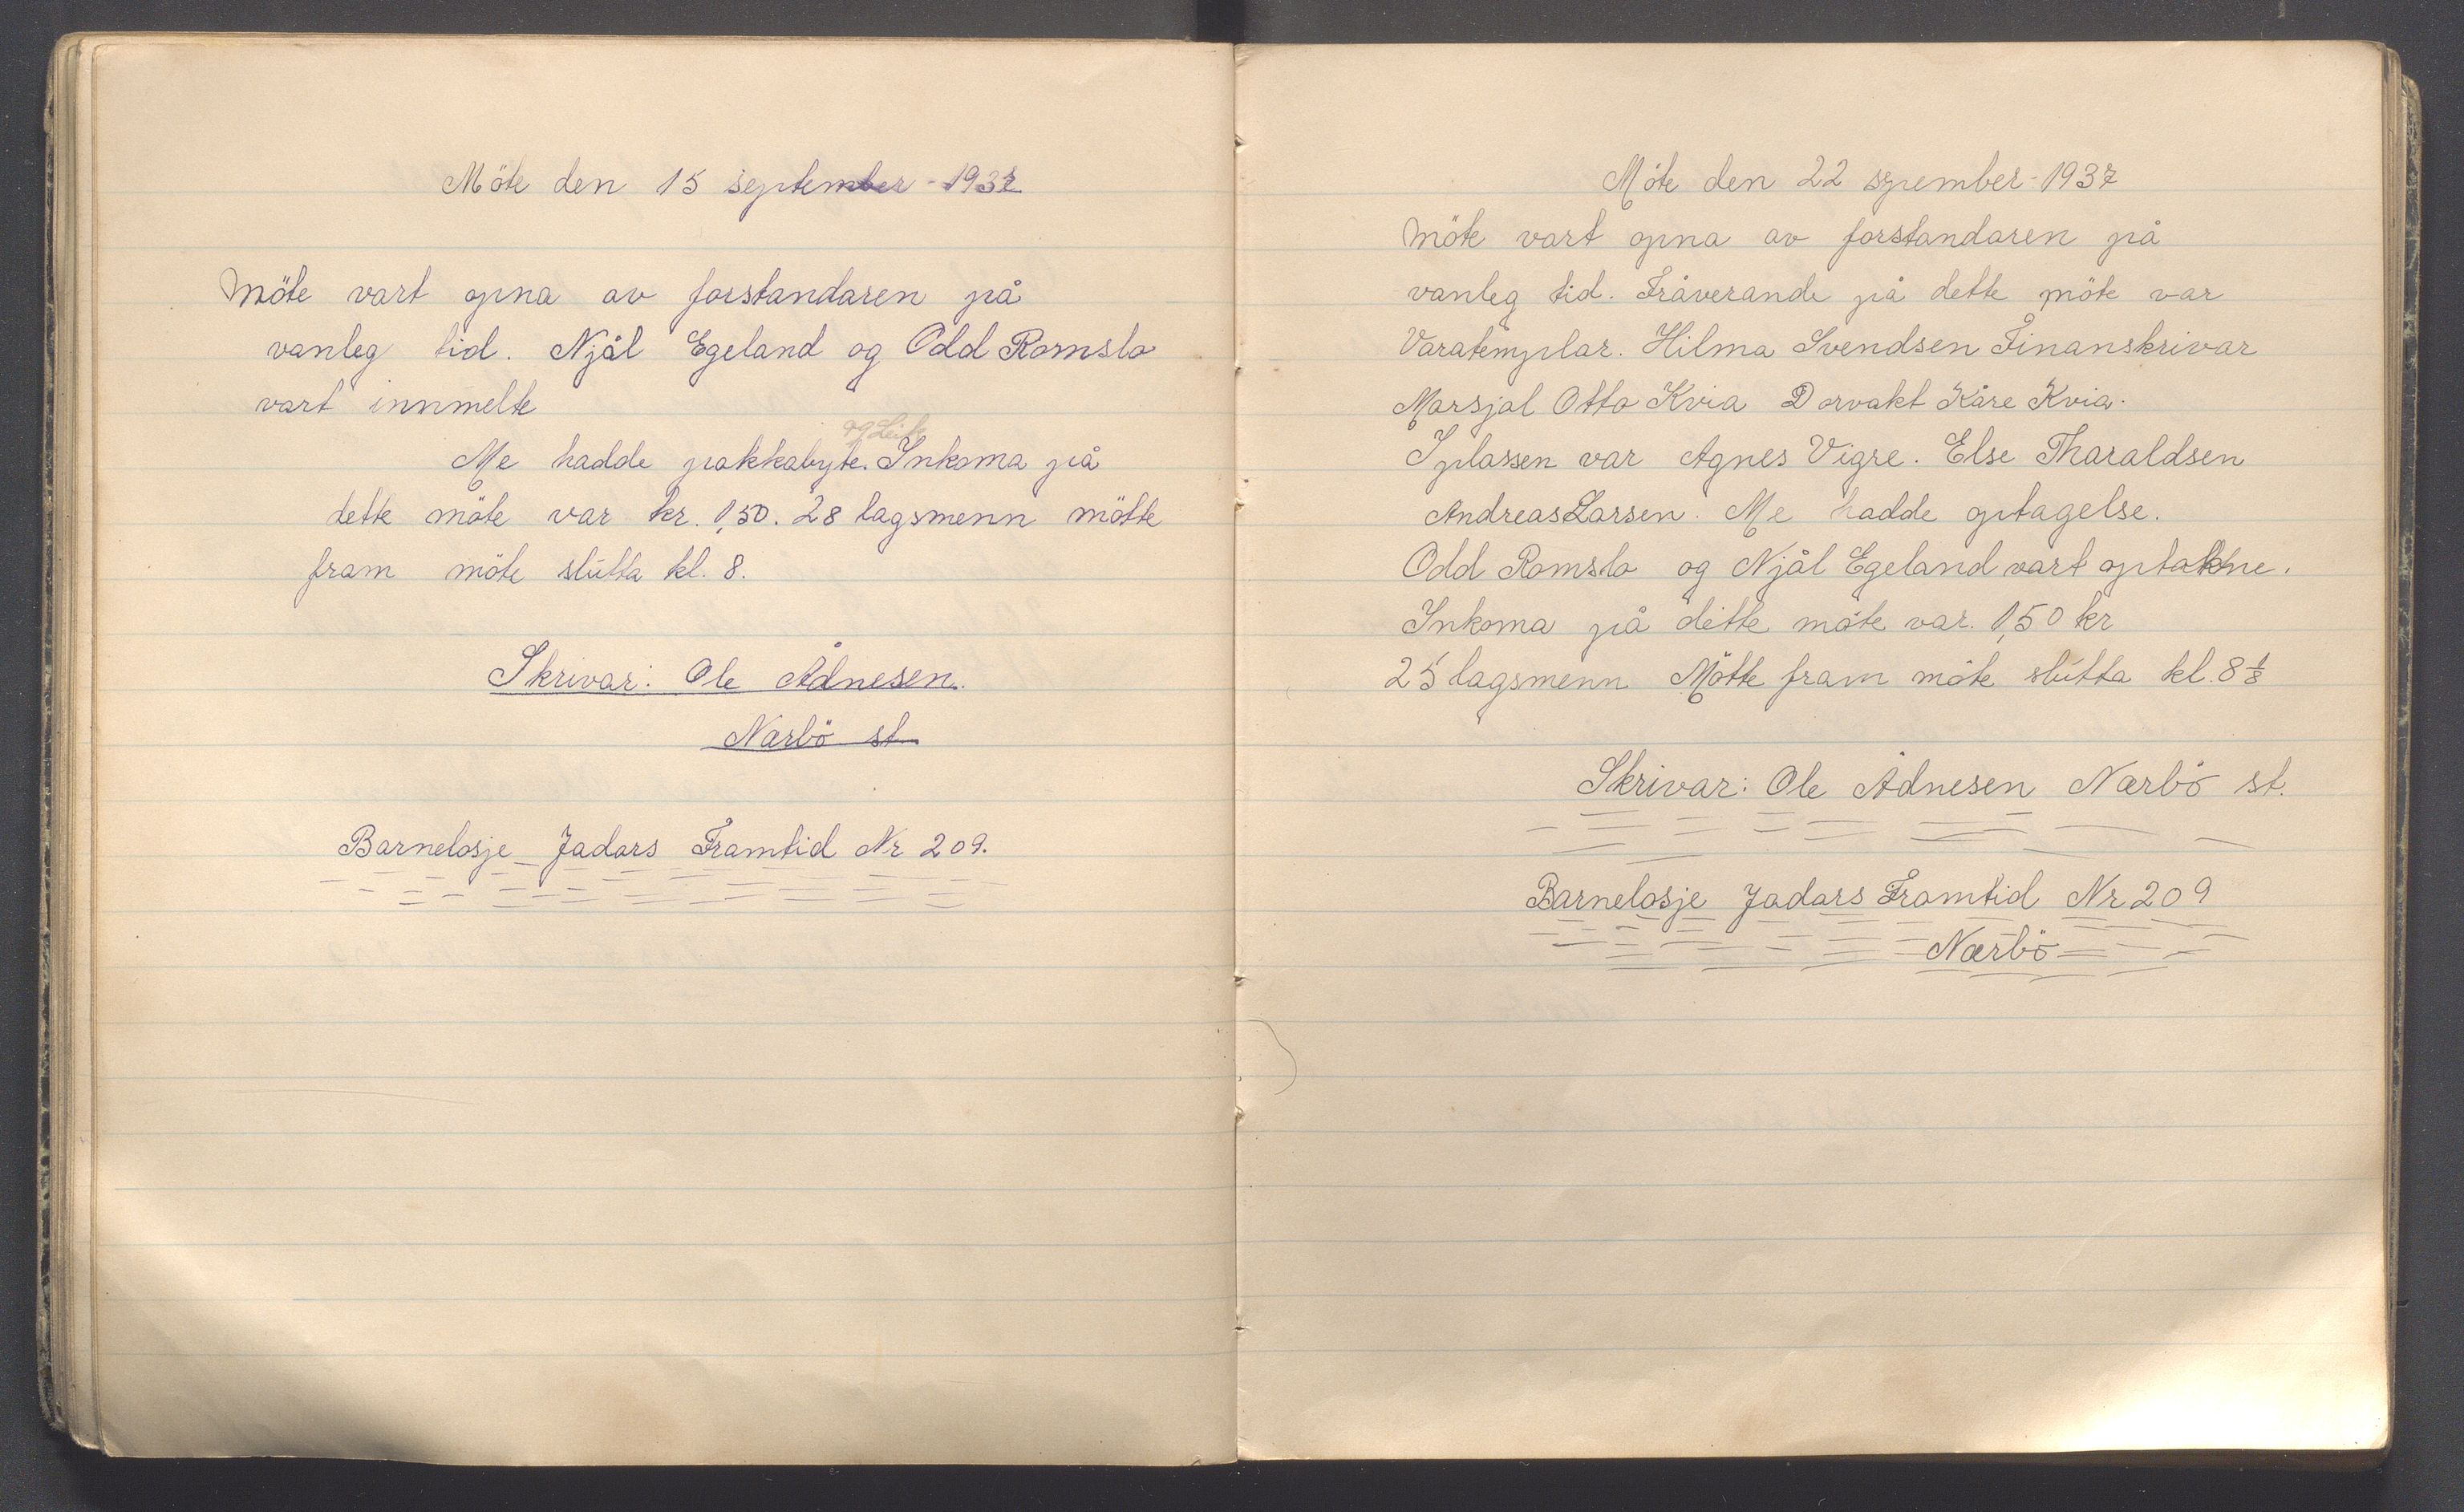 Möte den 15 september - 1937
Möte vart opna av forstandaren på
vanleg tid. Njål Egeland og Odd Romslo
vart innmelte
og Leik
Me hadde pakkabyte. Inkoma på
dette möte var kr. 1,50. 28 lagsmenn mötte
fram möte slutta kl. 8.
Skrivar: Ole Ådnesen.
Nærbö st.
Barnelosje Jadars Framtid Nr 209.
Möte den 22 spember - 1937
Möte vart opna av forstandaren på
vanleg tid. Fråverande på dette möte var
Varatemplar. Hilma Svendsen Finanskrivar
Marsjal Otto Kvia Dorvakt Kåre Kvia.
I plassen var Agnes Vigre. Else Tharaldsen
Andreas Larsen. Me hadde optagelse.
Odd Romslo og Njål Egeland vart optaktne.
Inkoma på dette möte var. 1,50 kr
25 lagsmenn Mötte fram möte slutta kl. 8 1/8
Skrivar: Ole Ådnesen Nærbö st.
Barnelosje Jadars Framtid Nr 209
Nærbö